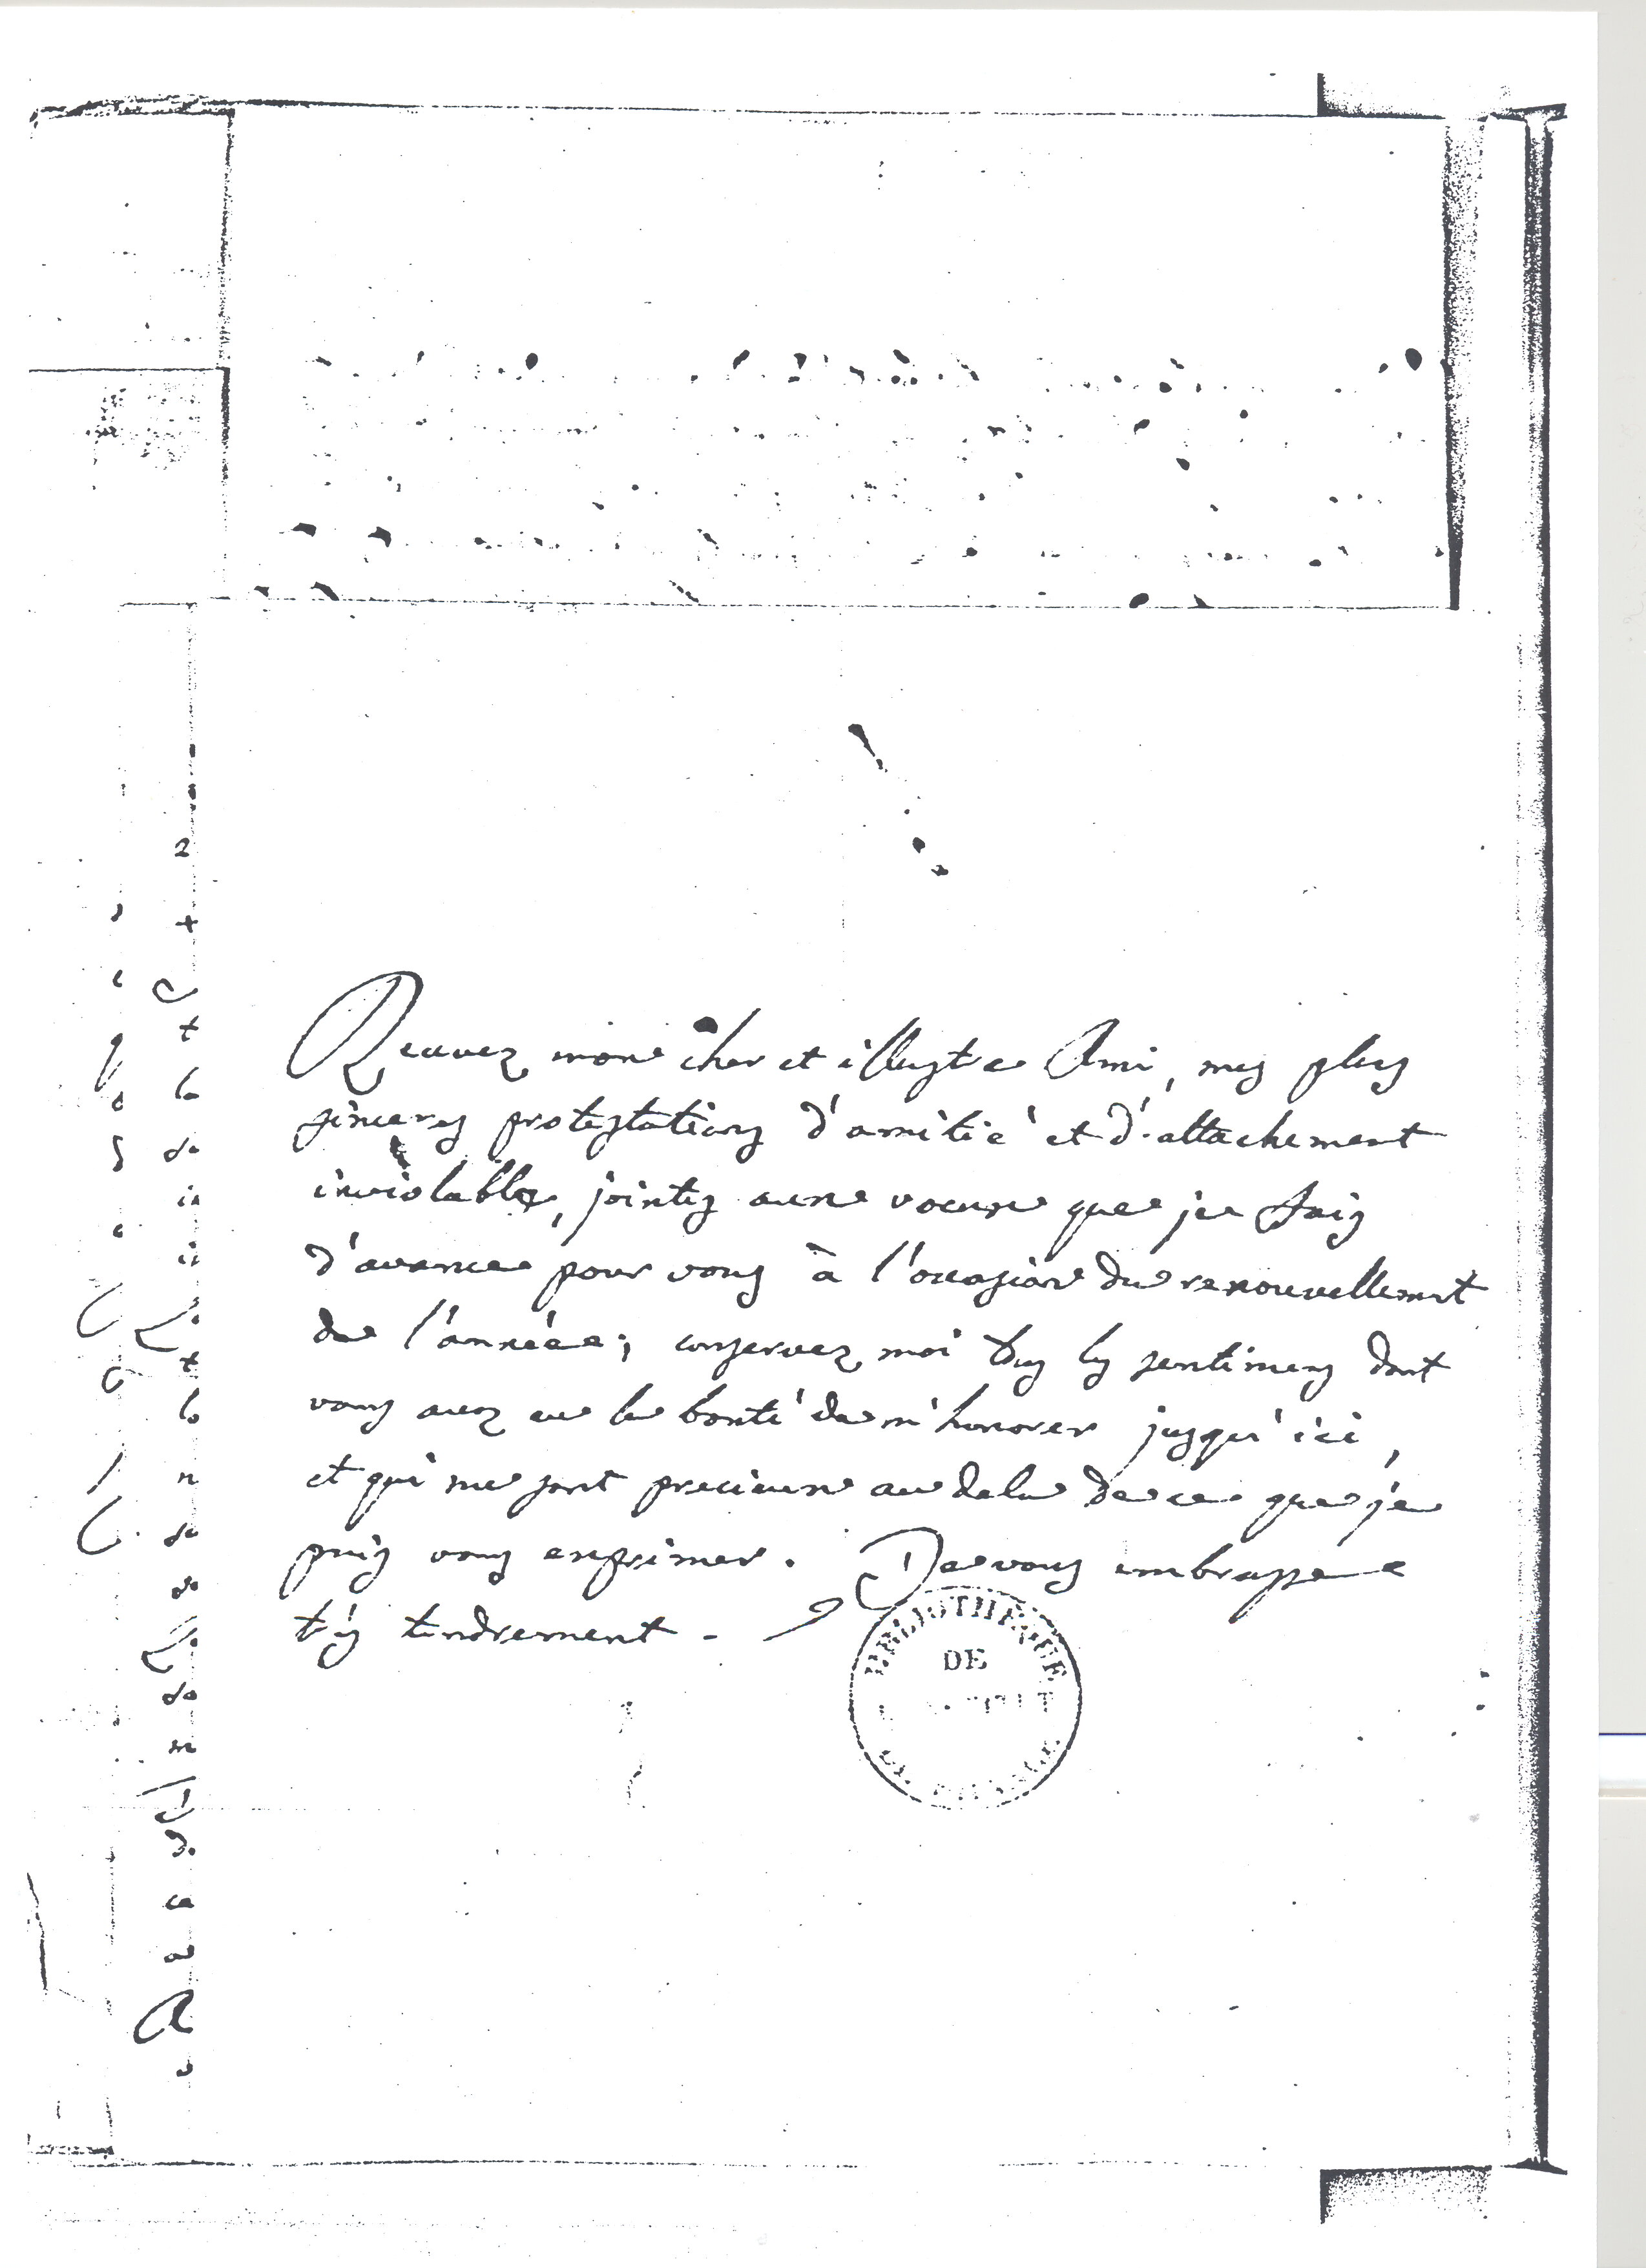 Recevez mon cher et illustre Ami, mes plus
sinceres protestations d'amitié et d'attachement
inviolable, jointes aux voeux que je fais
d'avance pour vous à l'occasion du renouvellement
de l'année; conservez moi tous les sentimens dont
vous avez eu la bonté de m'honorer jusqu'ici,
et qui me sont precieux au dela de ce que je
puis vous exprimer. Je vous embrasse
très tendrement.
BIBLIOTHEQUE
DE